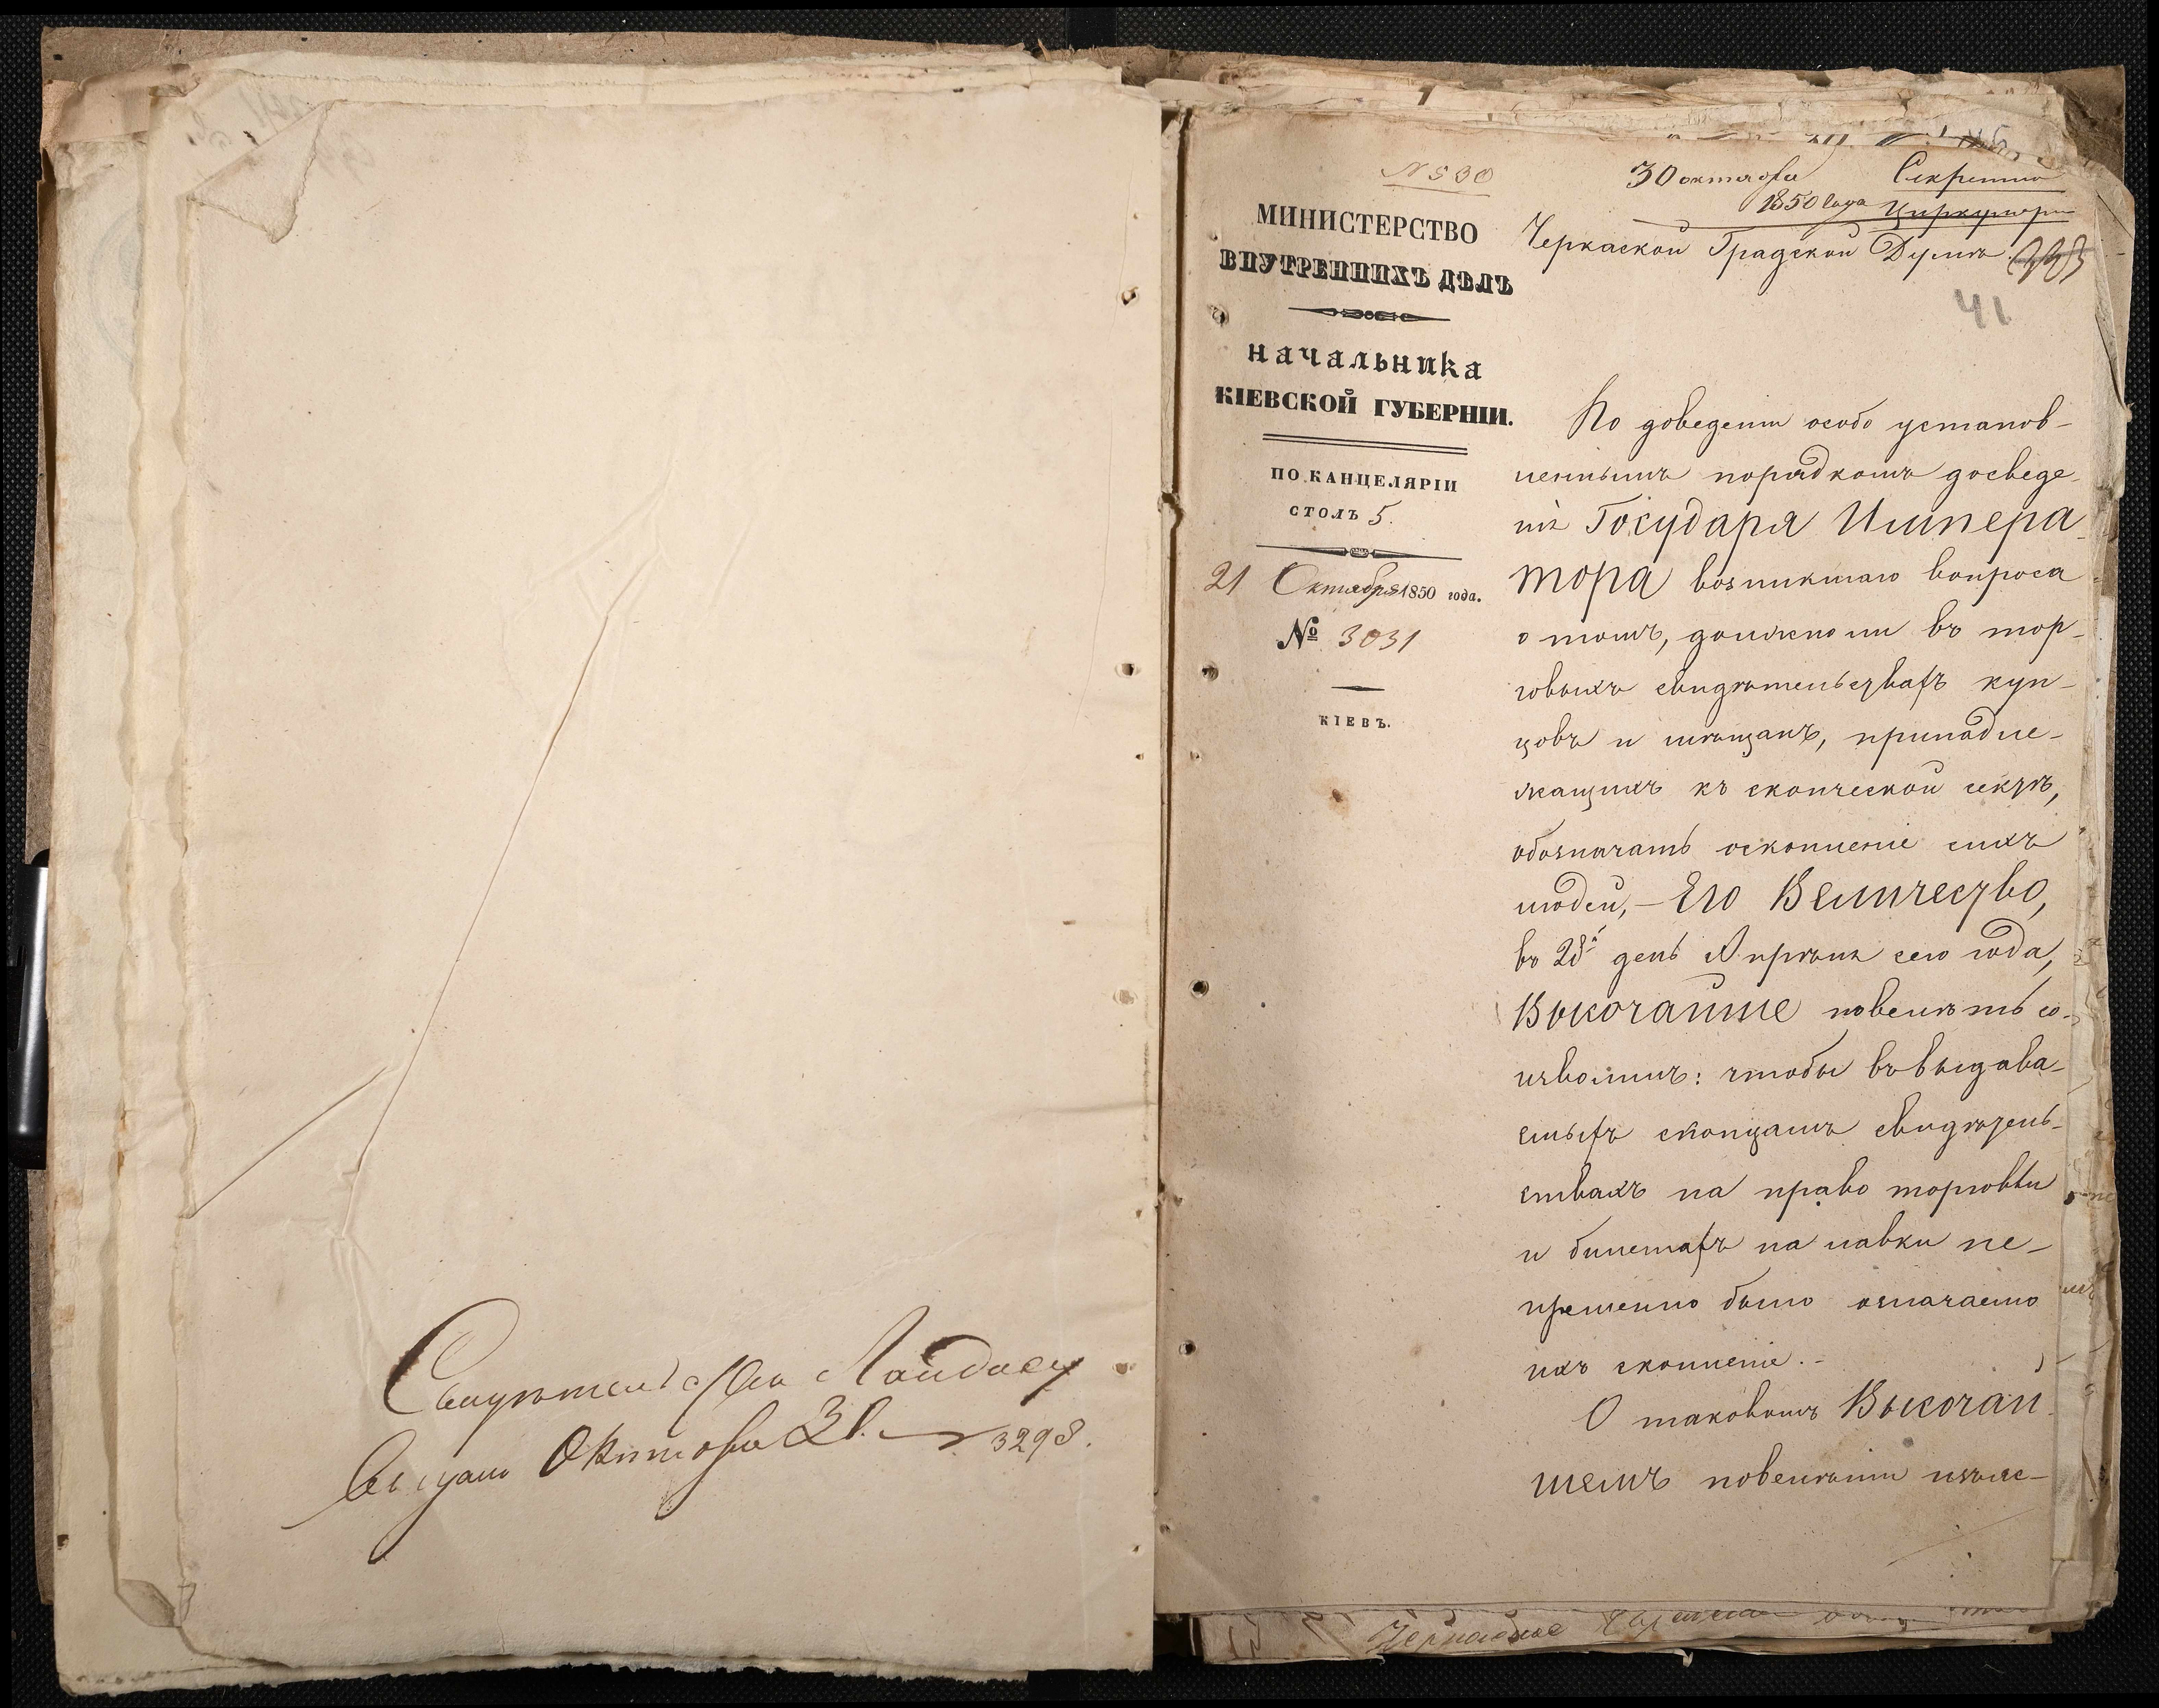 Свидѣтельство Лайдасу
выдано Октября 31. № 3298.
№ 530
30 октября
1850 года
Секретно
Циркулярно
МИНИСТЕРСТВО
ВНУТРЕННИХЪ ДѢЛЪ
НАЧАЛЬНИКА
КІЕВСКОЙ ГУБЕРНІИ.
ПО КАНЦЕЛЯРІИ
СТОЛЪ 5.
21 Октября 1850 года.
№ 3031
КІЕВЪ.
Черкаской Градской Думѣ
41
По доведеніи особо установ-
леннымъ порядкомъ до сведе-
нія Государя Импера-
тора возникшаго вопроса
о томъ, должно ли въ тор-
говыхъ свидѣтельствахъ куп-
цовъ и мѣщанъ, принадле-
жащихъ къ скопческой сектѣ,
обозначать оскопленіе сихъ
людей, – Его Величество,
въ 28й день Апрѣля сего года,
Высочайше повелѣть со-
изволилъ: чтобы въ выдава-
емыхъ скопцамъ свидѣтель-
ствахъ на право торговли
и билетахъ на лавки не-
премѣнно было означаемо
ихъ скопленіе. –
О таковомъ Высочай-
шемъ повелѣніи изъяс-